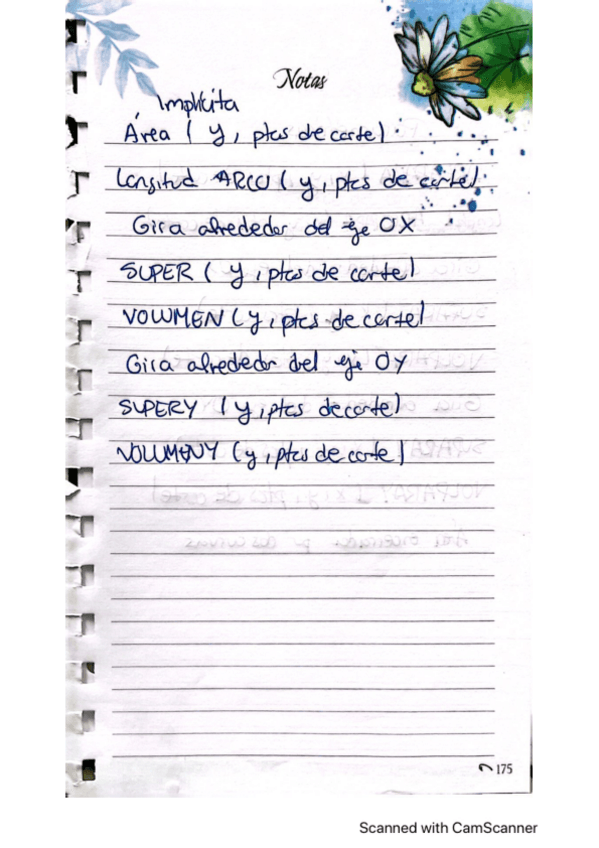 Notas
Implícita
Área ( y, ptos de corte)
Longitud ARCO ( y, ptos de corte)
Gira alrededor del eje OX
SUPER ( y, ptos de corte)
VOLUMEN ( y, ptos de corte)
Gira alrededor del eje OY
SUPERY ( y, ptos de corte)
VOLUMENY ( y, ptos de corte)
175
Scanned with CamScanner